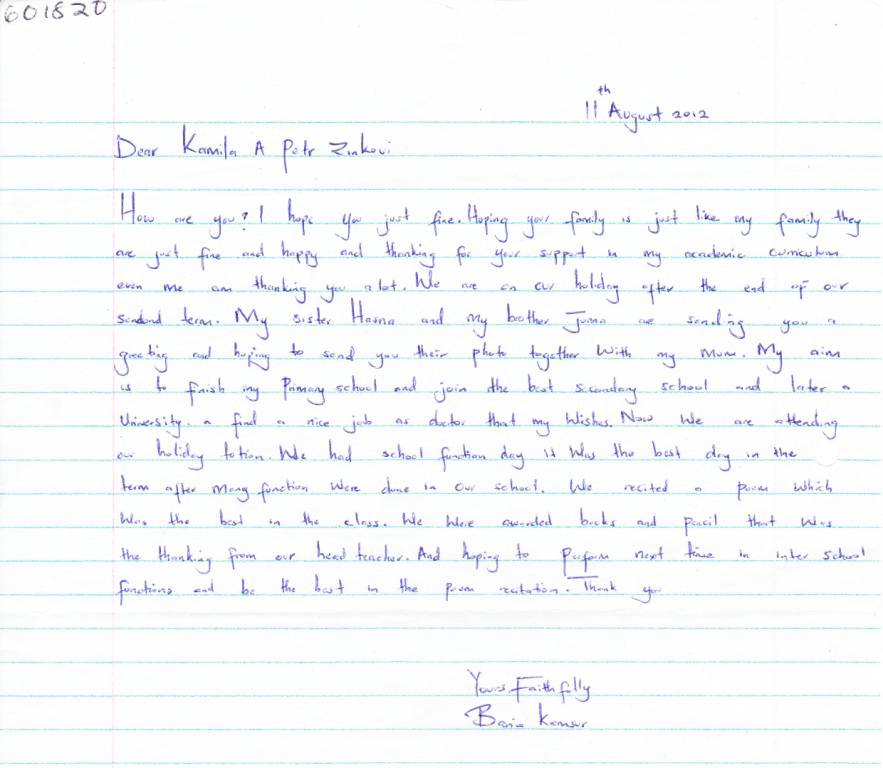 601820
11th August 2012
Dear Kamila A Petr Zinkovi
How are you? I hope you just fine. Hoping your family is just like my family they
are just fine and happy and thanking for your support in my academic curriculum
even me am thanking you a lot. We are on our holiday after the end of our
secdond term. My sister Hasna and my brother Juma are sending you a
greeting and hoping to send you their photo together with my Mum. My aim
is to finish my Primary school and join the best secondary school and later a
University. a find a nice job as doctor that my Wishes. Now We are attending
our holiday totion. We had school function day it Was the best day in the
term after Many function Were done in our school. We recited a poem Which
Was the best in the class. We Were awarded books and pencil that Was
the thanking from our head teacher. And hoping to Perform next time in inter school
functions and be the best in the poem recitation. Thank you
Yours Faithfully